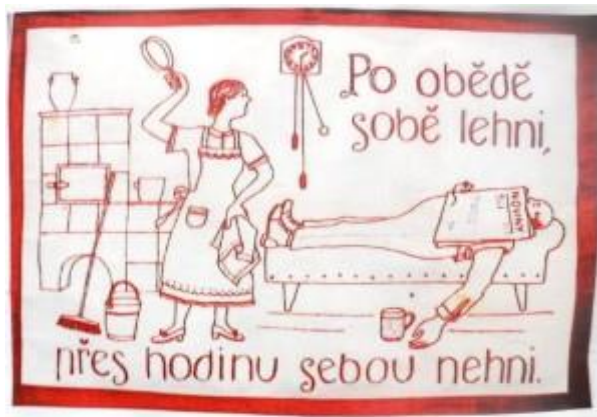 Po obědě
sobě lehni,
NOVINY
přes hodinu sebou nehni.